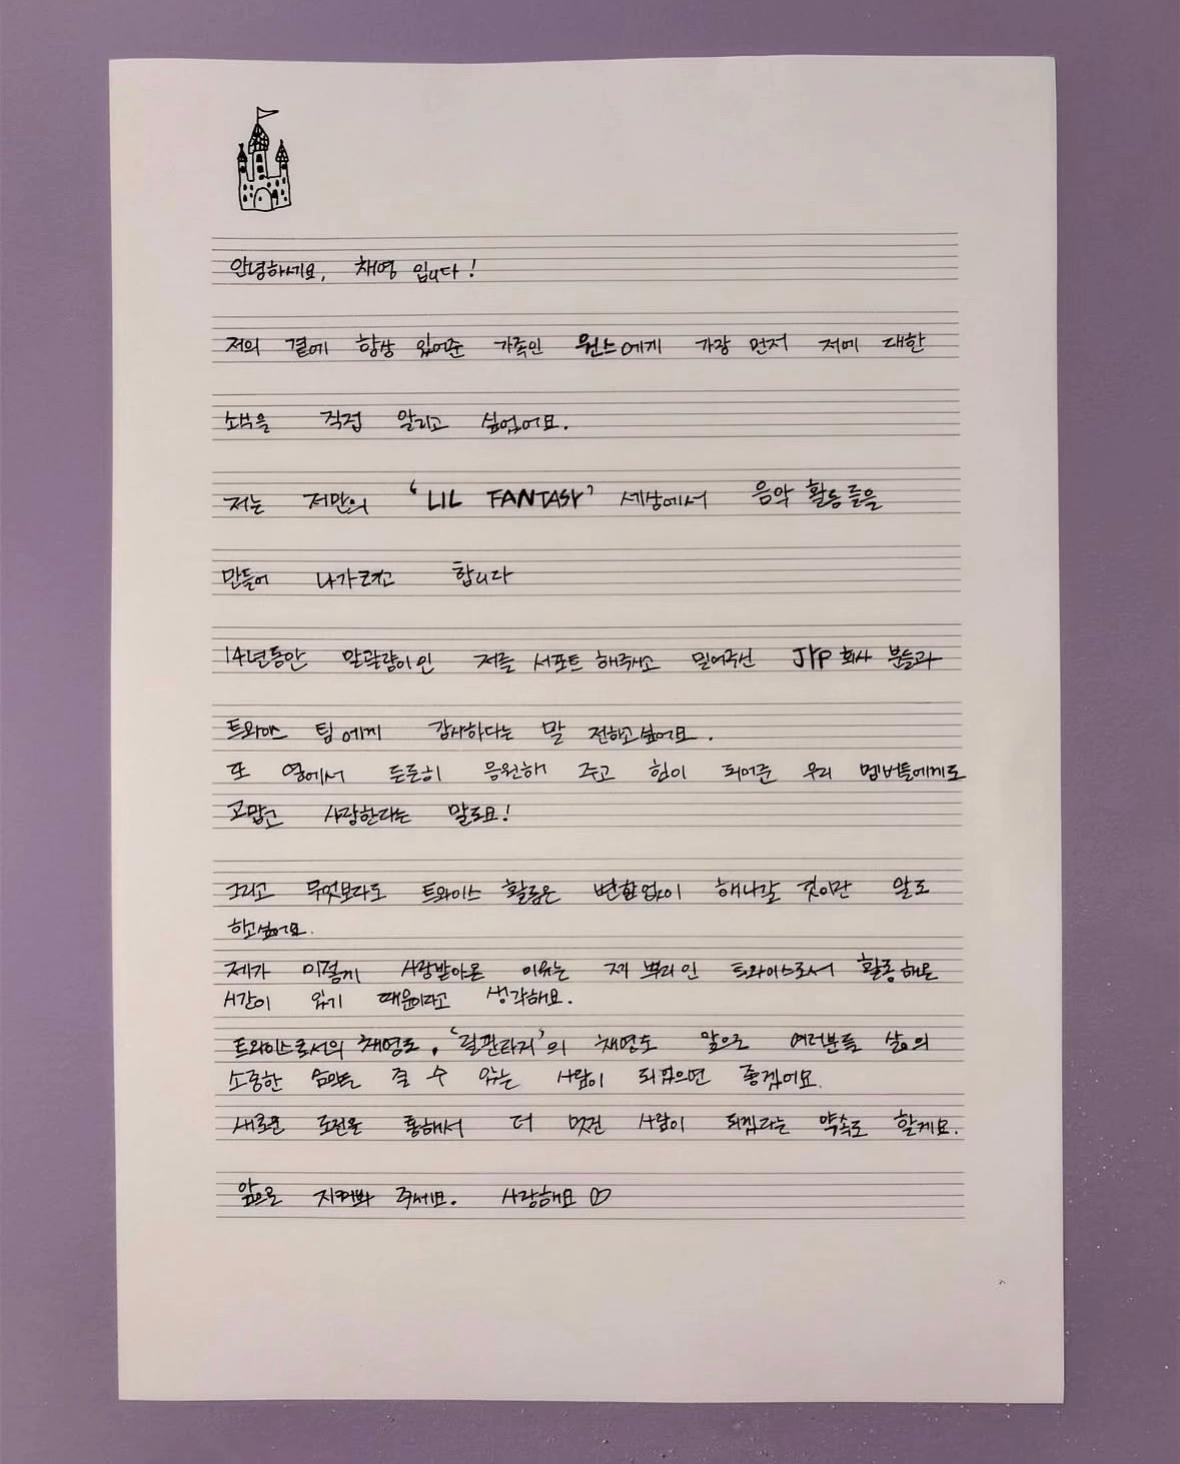 안녕하세요, 채영 입니다!
저의 곁에 항상 있어준 가족인 원스에게 가장 먼저 저에 대한
소식을 직접 알리고 싶었어요.
저는 저만의 'LIL FANTASY' 세상에서 음악 활동들을
만들어 나가려고 합니다
14년동안 말괄량이인 저를 서포트 해주시고 믿어주신 JYP 회사 분들과
트와이스 팀에게 감사하다는 말 전하고싶어요.
또 옆에서 든든히 응원해 주고 힘이 되어준 우리 멤버들에게도
고맙고 사랑한다는 말도요!
그리고 무엇보다도 트와이스 활동은 변함없이 해나갈 것이란 말도
하고싶어요.
제가 이렇게 사랑받아온 이유는 제 뿌리인 트와이스로서 활동해온
시간이 있기 때문이라고 생각해요.
트와이스로서의 채영도, '릴판타지'의 채영도 앞으로 여러분들 삶의
소중한 를 줄 수 있는 사람이 되었으면 좋겠어요.
새로운 도전을 통해서 더 멋진 사람이 되겠다는 약속도 할게요.
앞으로 지켜봐 주세요. 사랑해요 ♡